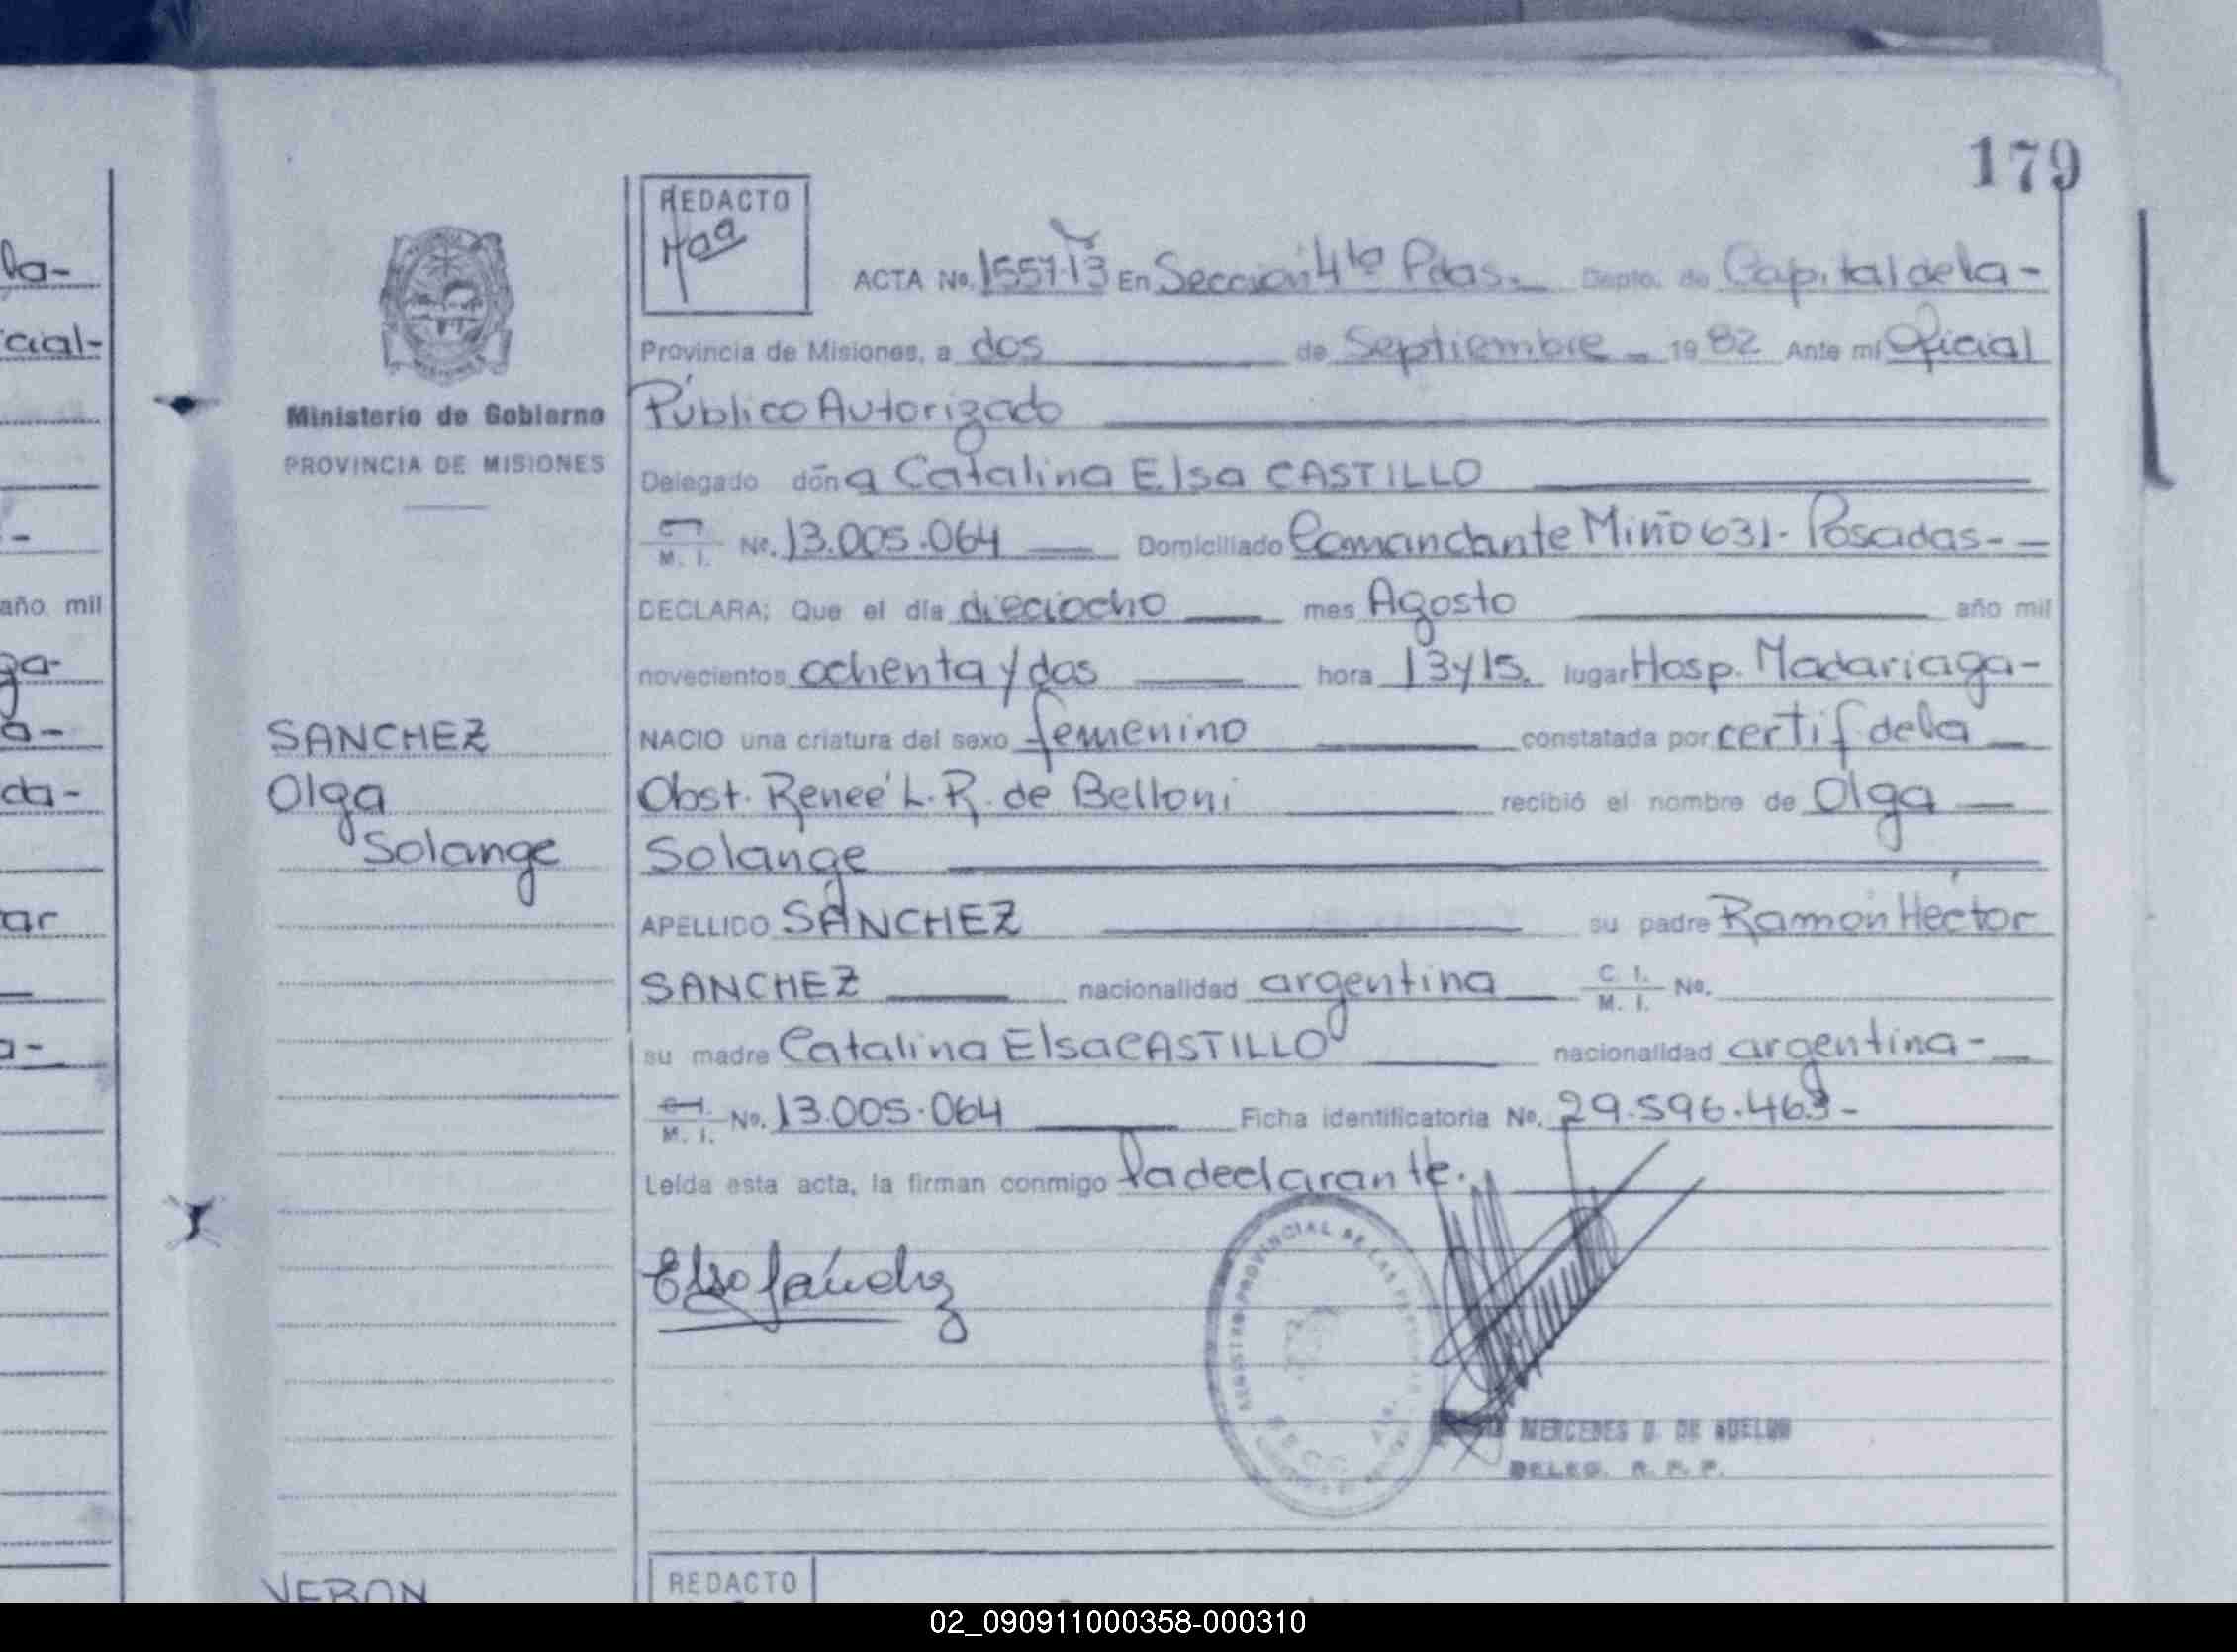 179
REDACTO
ACTA No. 1557-T3 En Sección 4ta Pdas.- Depto. de Capital de la-
Provincia de Misiones, a dos de Septiembre - 19 82 Ante mi Oficial
Público Autorizado
Delegado doña Catalina Elsa CASTILLO
M. I. No. 13.005.064 Domiciliado Comandante Miño 631- Posadas--
DECLARA; Que el día dieciocho mes Agosto año mil
novecientos ochenta y dos hora 13y15. lugar Hosp. Madariaga-
NACIO una criatura del sexo femenino constatada por certif de la
Obst. Reneé L. R. de Belloni recibió el nombre de Olga
Solange
APELLIDO SANCHEZ su padre Ramón Héctor
SANCHEZ nacionalidad argentina C. I. M. I. No.
su madre Catalina Elsa CASTILLO nacionalidad argentina-
C.I. M. I. No. 13.005.064 Ficha identificatoria No. 29.596.463-
Leída esta acta, la firman conmigo la declarante.
Elsa Sánchez
REGISTRO PROVINCIAL DE LAS PERSONAS
MERCEDES D. DE
DELEG. R. P. P.
REDACTO
Ministerio de Gobierno
PROVINCIA DE MISIONES
SANCHEZ
Olga
Solange
VERON
la-
cial-
-
año mil
ga-
a-
da-
ar
a-
02_090911000358-000310